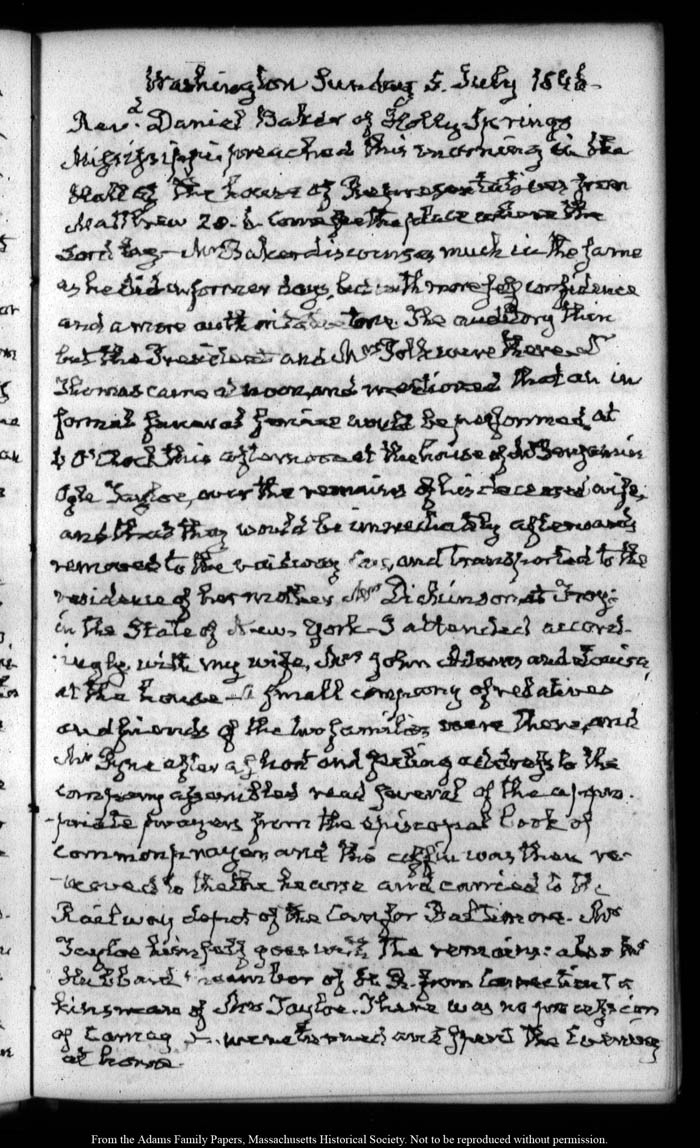 Washington Sunday 5. July 1846.
Revd. Daniel Baker of Holly Springs
Mississippi preached this morning in the
Hall of the house of Representatives from
Matthew 28. 6. Come see the place where the
Lord lay. Mr Baker discourses much in the same
as he did in former days, but with more self confidence
and a more authoritative tone. The auditory thin
but the President and Mrs Polk were there.
Thomas came at noon, and mentioned that an in
formal funeral service would be performed at
6 O'Clock this afternoon at the house of Mr Benjamin
Ogle Tayloe, over the remains of his deceased wife,
and that they would be immediately afterwards
removed to the railway Cars, and transported to the
residence of her mother Mrs Dickinson at Troy
in the State of New York. I attended accord-
ingly, with my wife, Mrs John Adams and Louisa,
at the house. A small company of relatives
and friends of the two families were there, and
Mr Pyne after a short and feeling address to the
company assembled read several of the appro-
-priate prayers from the Episcopal book of
common prayer and the coffin was then re-
-moved to the the hearse and carried to the
Railway depot of the Cars for Baltimore. Mr
Tayloe himself goes with the remains: also Mr
Hubbard member of H.R. from Connecticut a
kinsman of Mrs Tayloe. There was no procession
of we returned and spent the Evening
at home.
From the Adams Family Papers, Massachusetts Historical Society. Not to be reproduced without permission.